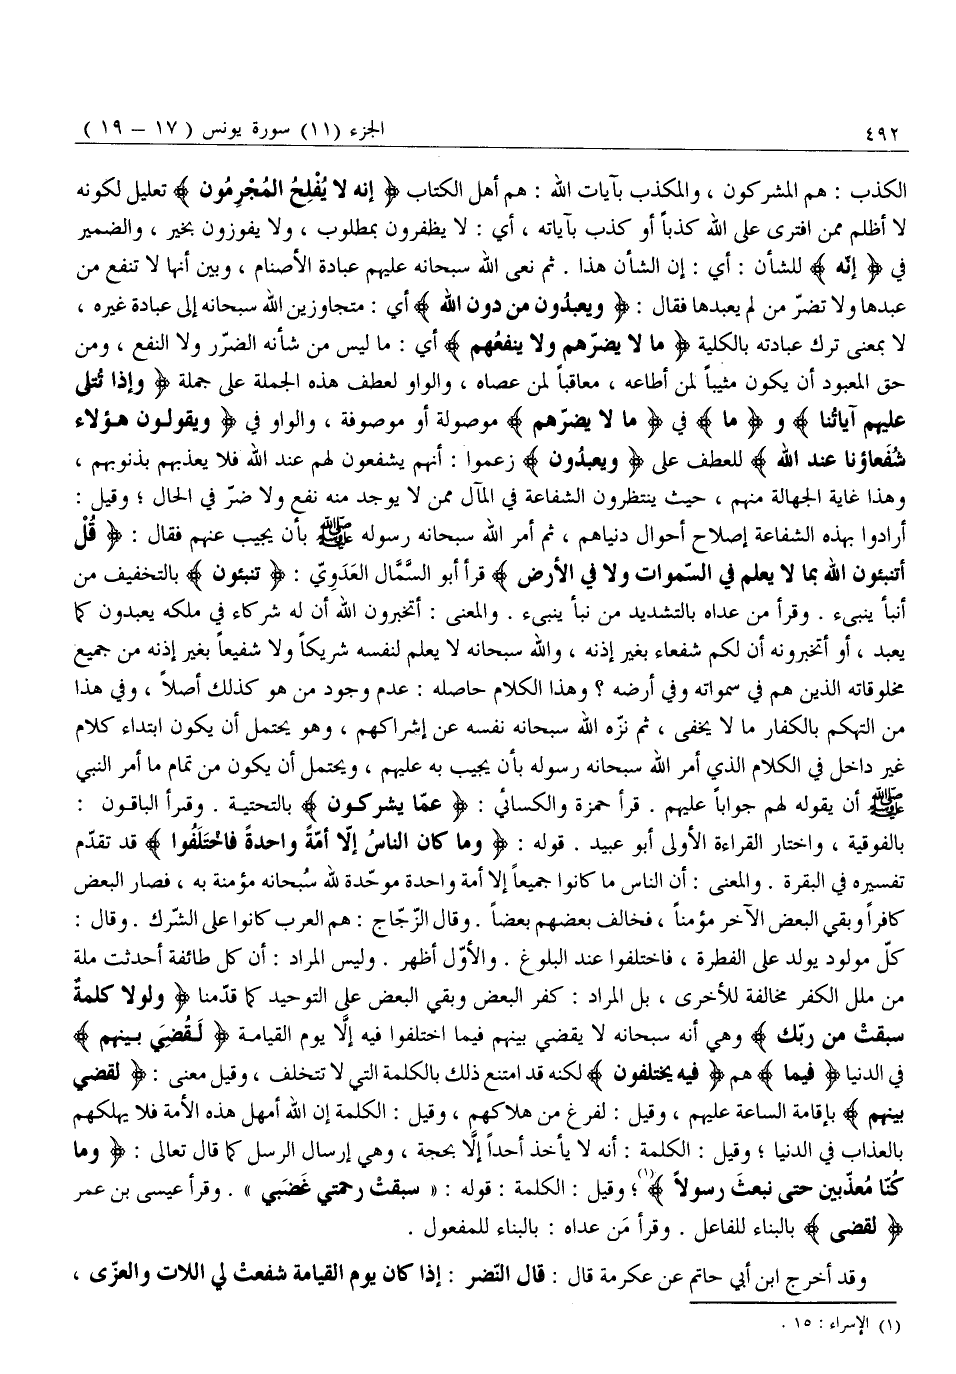 ٤٩٢ الجزء (١١) سورة يونس ( ١٧ – ١٩ )
الكذب : هم المشركون ، والمكذب بآيات الله : هم أهل الكتاب ﴿ إنه لا يُفْلِحُ المُجْرِمُون ﴾ تعليل لكونه
لا أظلم ممن افترى على الله كذباً أو كذب بآياته ، أي : لا يظفرون بمطلوب ، ولا يفوزون بخير ، والضمير
في ﴿ إنّه ﴾ للشأن : أي : إن الشأن هذا . ثم نعى الله سبحانه عليهم عبادة الأصنام ، وبين أنها لا تنفع من
عبدها ولا تضرّ من لم يعبدها فقال : ﴿ ويعبدُون من دون الله ﴾ أي : متجاوزين الله سبحانه إلى عبادة غيره ،
لا بمعنى ترك عبادته بالكلية ﴿ ما لا يضرّهم ولا ينفعُهم ﴾ أي : ما ليس من شأنه الضرّر ولا النفع ، ومن
حق المعبود أن يكون مثيباً لمن أطاعه ، معاقباً لمن عصاه ، والواو لعطف هذه الجملة على جملة ﴿ وإذا تُتلى
عليهم آياتُنا ﴾ و ﴿ ما ﴾ في ﴿ ما لا يضرّهم ﴾ موصولة أو موصوفة ، والواو في ﴿ ويقولون هؤلاء
شُفَعاؤنا عند الله ﴾ للعطف على ﴿ ويعبدُون ﴾ زعموا : أنهم يشفعون لهم عند الله فلا يعذبهم بذنوبهم ،
وهذا غاية الجهالة منهم ، حيث ينتظرون الشفاعة في المآل ممن لا يوجد منه نفع ولا ضرّ في الحال ؛ وقيل :
أرادوا بهذه الشفاعة إصلاح أحوال دنياهم ، ثم أمر الله سبحانه رسوله ﷺ بأن يجيب عنهم فقال : ﴿ قُلْ
أتنبئون الله بما لا يعلم في السّموات ولا في الأرض ﴾ قرأ أبو السَّمَّال العَدَوِيّ : ﴿ تنبئون ﴾ بالتخفيف من
أنبأ ينبىء . وقرأ من عداه بالتشديد من نبأ ينبىء . والمعنى : أتخبرون الله أن له شركاء في ملكه يعبدون كما
يعبد ، أو أتخبرونه أن لكم شفعاء بغير إذنه ، والله سبحانه لا يعلم لنفسه شريكاً ولا شفيعاً بغير إذنه من جميع
مخلوقاته الذين هم في سمواته وفي أرضه ؟ وهذا الكلام حاصله : عدم وجود من هو كذلك أصلاً ، وفي هذا
من التهكم بالكفار ما لا يخفى ، ثم نزّه الله سبحانه نفسه عن إشراكهم ، وهو يحتمل أن يكون ابتداء كلام
غير داخل في الكلام الذي أمر الله سبحانه رسوله بأن يجيب به عليهم ، ويحتمل أن يكون من تمام ما أمر النبي
ﷺ أن يقوله لهم جواباً عليهم . قرأ حمزة والكسائي : ﴿ عمّا يشركون ﴾ بالتحتية . وقرأ الباقون :
بالفوقية ، واختار القراءة الأولى أبو عبيد . قوله : ﴿ وما كان الناسُ إلّا أمّةً واحدةً فاخْتَلَفُوا ﴾ قد تقدّم
تفسيره في البقرة . والمعنى : أن الناس ما كانوا جميعاً إلا أمة واحدة موحّدة لله سُبحانه مؤمنة به ، فصار البعض
كافراً وبقي البعض الآخر مؤمناً ، فخالف بعضهم بعضاً . وقال الزّجّاج : هم العرب كانوا على الشّرك . وقال :
كلّ مولود يولد على الفطرة ، فاختلفوا عند البلوغ . والأوّل أظهر . وليس المراد : أن كل طائفة أحدثت ملة
من ملل الكفر مخالفة للأخرى ، بل المراد : كفر البعض وبقي البعض على التوحيد كما قدّمنا ﴿ ولولا كلمةٌ
سبقتْ من ربّك ﴾ وهي أنه سبحانه لا يقضي بينهم فيما اختلفوا فيه إلَّا يوم القيامة ﴿ لَقُضِيَ بينهم ﴾
في الدنيا ﴿ فيما ﴾ هم ﴿ فيه يختلفون ﴾ لكنه قد امتنع ذلك بالكلمة التي لا تتخلف ، وقيل معنى : ﴿ لقضي
بينهم ﴾ بإقامة الساعة عليهم ، وقيل : لفرغ من هلاكهم ، وقيل : الكلمة إن الله أمهل هذه الأمة فلا يهلكهم
بالعذاب في الدنيا ؛ وقيل : الكلمة : أنه لا يأخذ أحداً إلَّا بحجة ، وهي إرسال الرسل كما قال تعالى : ﴿ وما
كنّا مُعذّبين حتى نبعثَ رسولاً ﴾(١) ؛ وقيل : الكلمة : قوله : « سبقتْ رحمتي غَضَبي » . وقرأ عيسى بن عمر
﴿ لقضى ﴾ بالبناء للفاعل . وقرأ مَن عداه : بالبناء للمفعول .
وقد أخرج ابن أبي حاتم عن عكرمة قال : قال النّضر : إذا كان يوم القيامة شفعتْ لي اللات والعزّى ،
(١) الإسراء : ١٥ .